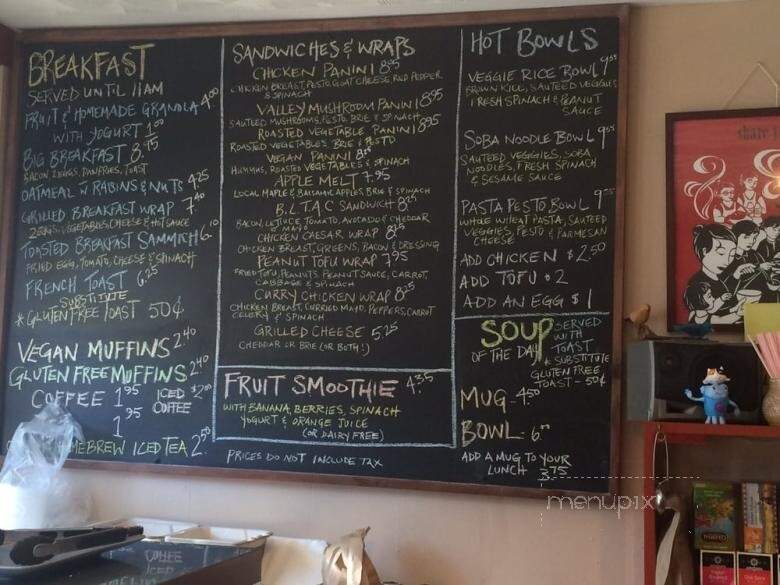 BREAKFAST
SERVED UNTIL 11AM
FRUIT & HOMEMADE GRANOLA 4.00
WITH YOGURT 1.00
BIG BREAKFAST 8.75
BACON, 2 EGGS, PAN FRIES, TOAST
OATMEAL W RABINS & NUTS 4.25
GRILLED BREAKFAST WRAP 7.40
2 EGGS, VEGETABLES, CHEESE & HOT SAUCE
TOASTED BREAKFAST SAMMICH 6.10
FRIED EGG, TOMATO, CHEESE & SPINACH
FRENCH TOAST 6.25
SUBSTITUTE
* GLUTEN FREE TOAST 50¢
VEGAN MUFFINS 2.40
GLUTEN FREE MUFFINS 2.40
COFFEE 1.95
ICED $2.00
COFFEE
1.95
HOMEBREW ICED TEA 2.50
SANDWICHES & WRAPS
CHICKEN PANINI 8.95
CHICKEN BREAST, PESTO, GOAT CHEESE, RED PEPPER
& SPINACH
VALLEY MUSHROOM PANINI 8.95
SAUTEED MUSHROOMS, PESTO, BRIE & SPINACH
ROASTED VEGETABLE PANINI 8.95
ROASTED VEGETABLES, BRIE & PESTO
VEGAN PANINI
HUMMUS, ROASTED VEGETABLES & SPINACH
APPLE MELT 7.95
LOCAL MAPLE & BALSAMIC APPLES, BRIE & SPINACH
B.L.T.A.C SANDWICH 8.25
BACON, LETTUCE, TOMATO, AVOCADO & CHEDDAR
& MAYO
CHICKEN CAESAR WRAP
CHICKEN BREAST, GREENS, BACON & DRESSING
PEANUT TOFU WRAP 7.95
FRIED TOFU, PEANUTS, PEANUT SAUCE, CARROT,
CABBAGE & SPINACH
CURRY CHICKEN WRAP 8.25
CHICKEN BREAST, CURRIED MAYO, PEPPERS, CARROT
CELERY & SPINACH
GRILLED CHEESE 5.25
CHEDDAR OR BRIE (OR BOTH!)
FRUIT SMOOTHIE 4.35
WITH BANANA, BERRIES, SPINACH
YOGURT & ORANGE JUICE
(OR DAIRY FREE)
PRICES DO NOT INCLUDE TAX
HOT BOWLS
VEGGIE RICE BOWL 9.55
BROWN RICE, SAUTEED VEGGIES
FRESH SPINACH & PEANUT
SAUCE
SOBA NOODLE BOWL 9.55
SAUTEED VEGGIES, SOBA
NOODLES, FRESH SPINACH
& SESAME SAUCE
PASTA PESTO BOWL
WHOLE WHEAT PASTA, SAUTEED
VEGGIES, PESTO & PARMESAN
CHEESE
ADD CHICKEN $2.50
ADD TOFU $2
ADD AN EGG $1
SOUP
OF THE DAY
SERVED
WITH
TOAST
* SUBSTITUTE
GLUTEN FREE
TOAST - 50¢
MUG - 4.50
BOWL - 6.00
ADD A MUG TO YOUR
LUNCH 3.75
menupix
share
COFFEE
ICED
COFFEE